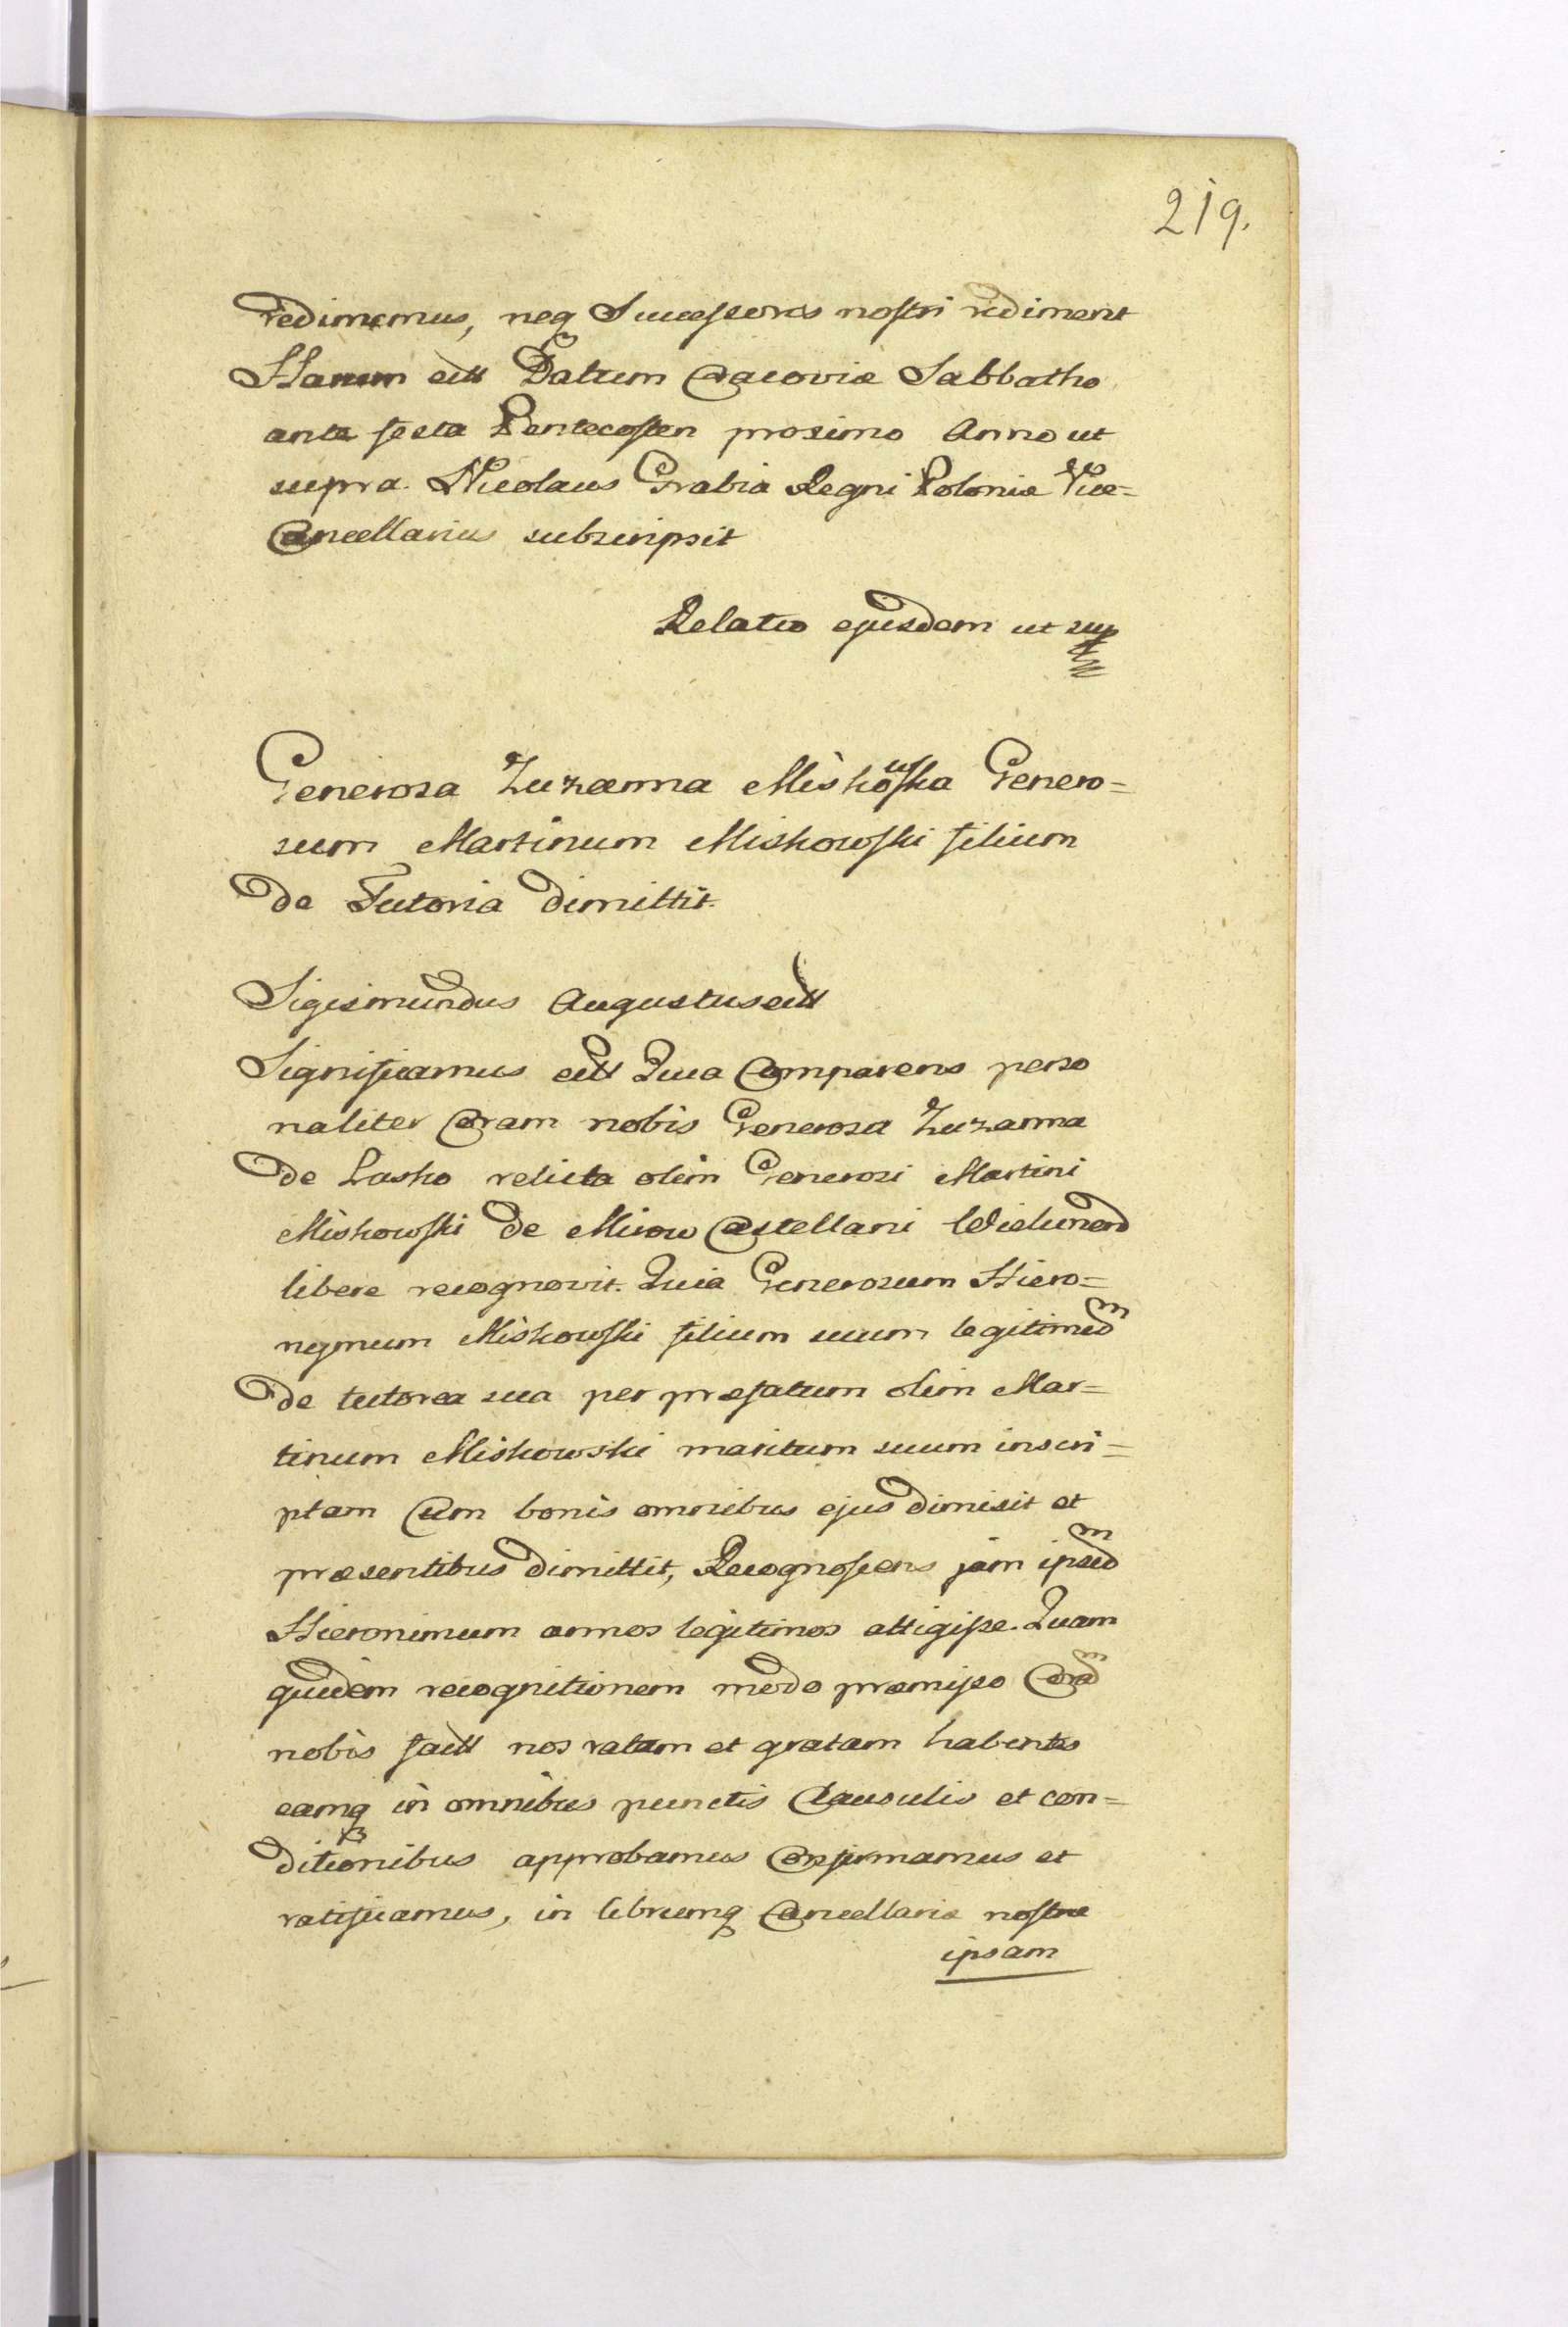 219.
redimemus, neq Successores nostri rediment
Harum ett Datum Cracoviæ Sabbatho
ante festa Pentecosten proximo Anno ut
supra. Nicolaus Grabia Regni Poloniæ Vice=
Cancellarius subscripsit
Relatio ejusdem ut sup
Generosa Zuzanna Miskowska Genero=
sum Martinum Miskowski filium
de Tutoria dimittit.
Sigismundus Augustus ett
Significamus ett Quia Comparens perso
naliter Coram nobis Generosa Zuzanna
de Lasko relicta olim Generosi Martini
Miskowski de Mirow Castellani Wielunens
libere recognovit. Quia Generosum Hiero=
nymum Miskowski filium suum legitimum
de tutorea sua per præfatum olim Mar=
tinum Miskowski maritum suum inscri=
ptam Cum bonis omnibus ejus dimisit et
præsentibus dimittit, Recognoscens jam ipsum
Hieronimum annos legitimos attigisse. Quam
quidem recognitionem modo præmisso Coram
nobis factt nos ratam et gratam habentes
eamq in omnibus punctis Clausulis et con=
ditionibus approbamus Confirmamus et
ratificamus, in librumq Cancellariæ nostræ
ipsam